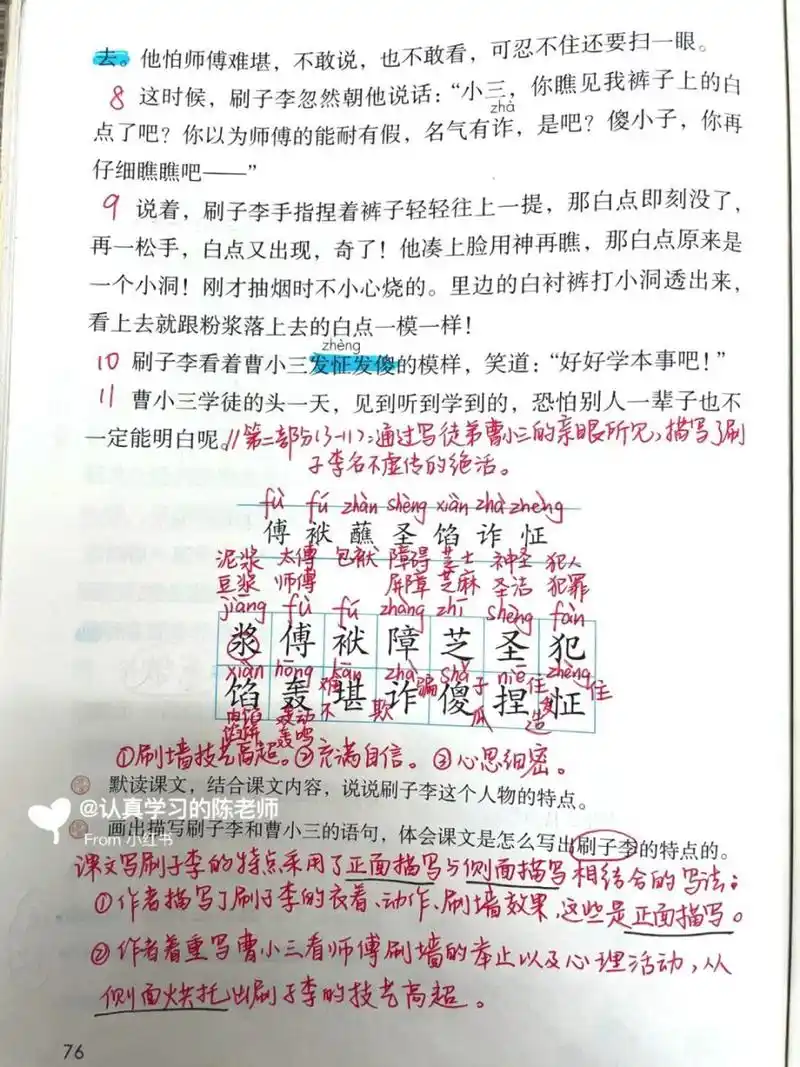 去。他怕师傅难堪，不敢说，也不敢看，可忍不住还要扫一眼。
8 这时候，刷子李忽然朝他说话：“小三，你瞧见我裤子上的白
zhà
点了吧？你以为师傅的能耐有假，名气有诈，是吧？傻小子，你再
仔细瞧瞧吧——”
9 说着，刷子李手指捏着裤子轻轻往上一提，那白点即刻没了，
再一松手，白点又出现，奇了！他凑上脸用神再瞧，那白点原来是
一个小洞！刚才抽烟时不小心烧的。里边的白衬裤打小洞透出来，
看上去就跟粉浆落上去的白点一模一样！
zhèng
10 刷子李看着曹小三发怔发傻的模样，笑道：“好好学本事吧！”
11 曹小三学徒的头一天，见到听到学到的，恐怕别人一辈子也不
一定能明白呢。//第二部分(3-11)：通过写徒弟曹小三的亲眼所见，描写了刷
子李名不虚传的绝活。
fù fú zhàn shèng xiàn zhà zhèng
傅 袱 蘸 圣 馅 诈 怔
泥浆 太傅 包袱 障碍 芝士 神圣 犯人
豆浆 师傅 屏障 芝麻 圣洁 犯罪
jiāng fù fú zhàng zhī shèng fàn
浆 傅 袱 障 芝 圣 犯
xiàn hōng kān zhà shǎ niē zhèng
馅 轰 难堪 诈骗 傻子 捏住 怔住
肉馅 轰动 不 欺 瓜 造
馅饼 轰鸣
①刷墙技艺高超。②充满自信。③心思细密。
默读课文，结合课文内容，说说刷子李这个人物的特点。
@认真学习的陈老师
From 小红书
画出描写刷子李和曹小三的语句，体会课文是怎么写出刷子李的特点的。
课文写刷子李的特点采用了正面描写与侧面描写相结合的写法：
①作者描写了刷子李的衣着、动作、刷墙效果，这些是正面描写。
②作者着重写曹小三看师傅刷墙的举止以及心理活动，从
侧面烘托出刷子李的技艺高超。
76